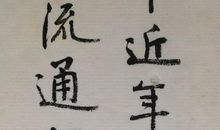 近年
流通